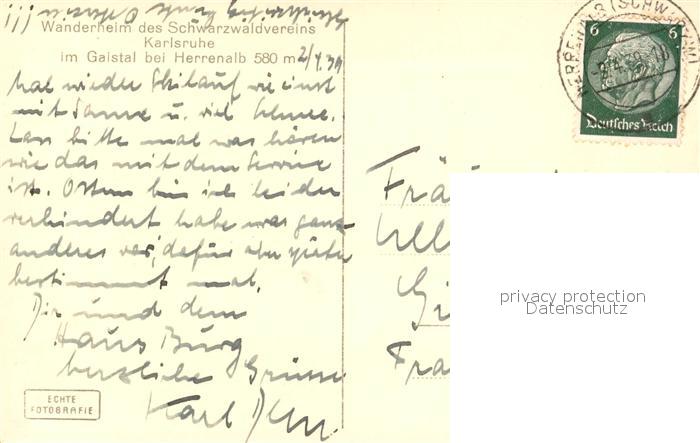 Wanderheim des Schwarzwaldvereins
Karlsruhe
im Gaistal bei Herrenalb 580 m
2/4.39
mal wieder Skilauf wie einst
mit Sonne u. viel Schnee.
Lass bitte mal was hören
wie das mit dem Service
ist. Ostern bin ich leider
verhindert, habe was ganz
anderes vor, dafür aber später
bestimmt mal.
Dir und dem
Haus Burg
herzliche Grüsse
Karl
ECHTE
FOTOGRAFIE
HERRENALB (SCHWARZW)
6 6
Deutsches Reich
Frä
Gi
Fra
privacy protection
Datenschutz